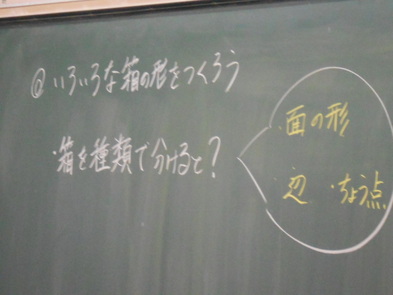 めいろいろな箱の形をつくろう
・箱を種類で分けると?
・面の形
・辺 ・ちょう点